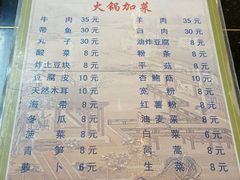 火锅加菜
牛肉 35元 羊肉 35元
带鱼 30元 白肉 30元
丸子 30元 油炸豆腐 8元
酸菜 8元 粉条 8元
炸土豆块 8元 平菇 8元
豆腐皮 10元 杏鲍菇 10元
天然木耳 10元 宽粉 10元
海带 8元 红薯粉 8元
冬瓜 8元 油麦菜 8元
菠菜 8元 白菜 6元
青笋 8元 茼蒿 8元
萝卜 6元 生菜 8元